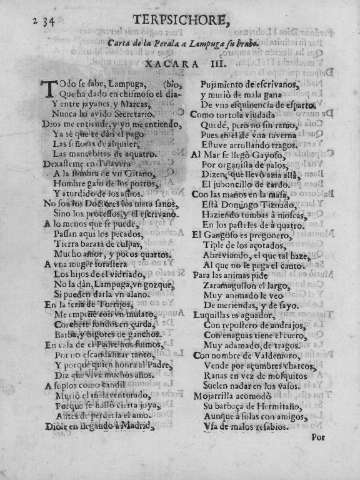 234 TERPSICHORE,
Carta de la Perala a Lampuga su bravo.
XACARA III.
TOdo se sabe, Lampuga, (blo,
Que ha dado en chismoso el dia-
Y entre jayanes, y Marcas,
Nunca ha avido Secretario.
Dios me entiende, y yo me entiendo,
Ya sè que te dàn el pago
Las señoras de alquiler,
Las mancebitas de aquatro.
Dexasteme en Talavera
A la sombra de un Gitano,
Hombre gafo de los potros,
Y aturdido de los asnos.
No son los Doctores los mata sanos,
Sino los processos, y el escrivano.
A lo menos que se puede,
Passan aqui los pecados,
Tierra barata de culpas,
Mucho amor, y pocos quartos.
A una muger forastera
Los hijos de el vidriado,
No la dàn, Lampuga, un gozque,
Si pueden darla un alano.
En la feria de Torrijos,
Me empeñè con un mulato,
Corchete fondos en zurda,
Barba, y bigotes de ganchos.
En casa de el Padre nos fuimos,
Por no escandalizar tanto,
Y porque quien honra al Padre,
Diz que vive muchos años.
A soplos como candil
Murió el malaventurado,
Porque se hallò cierta joya,
Antes de perder la el amo.
Dióle en llegando à Madrid,
Pujamiento de escrivanos,
Y murió de mala gana
De una esquinencia de esparto.
Como tortola viudada
Quedé, pero no sin ramo,
Pues en el de una taverna
Estuve arrollando tragos.
Al Mar se llegò Gayoso,
Por organista de palos,
Dizen, que llevò azia allà
El juboncillo de tardo.
Con las manos en la masa,
Està Domingo Tiznado,
Haziendo tumbas à moscas,
En los pasteles de à quatro.
El Gangoso es pregonero,
Tiple de los açotados,
Abreviando, el que tal haze,
Al que no le pega el canto.
Para las animas pide
Zaramagullon el largo,
Muy arromado le veo
De meriendas, y de sayo.
Luquillas es aguador,
Con repostero de andrajos,
Con enaguas tiene el cuero,
Muy adamado, de tragos.
Con nombre de Valdemoro,
Vende por açumbres charcos,
Ranas en vez de mosquitos
Suelen nadar en los vasos.
Mojarrilla acomodò
Su barbaça de Hermitaño,
Aunque à solas con amigos,
Vsa de malos resabios.
Por